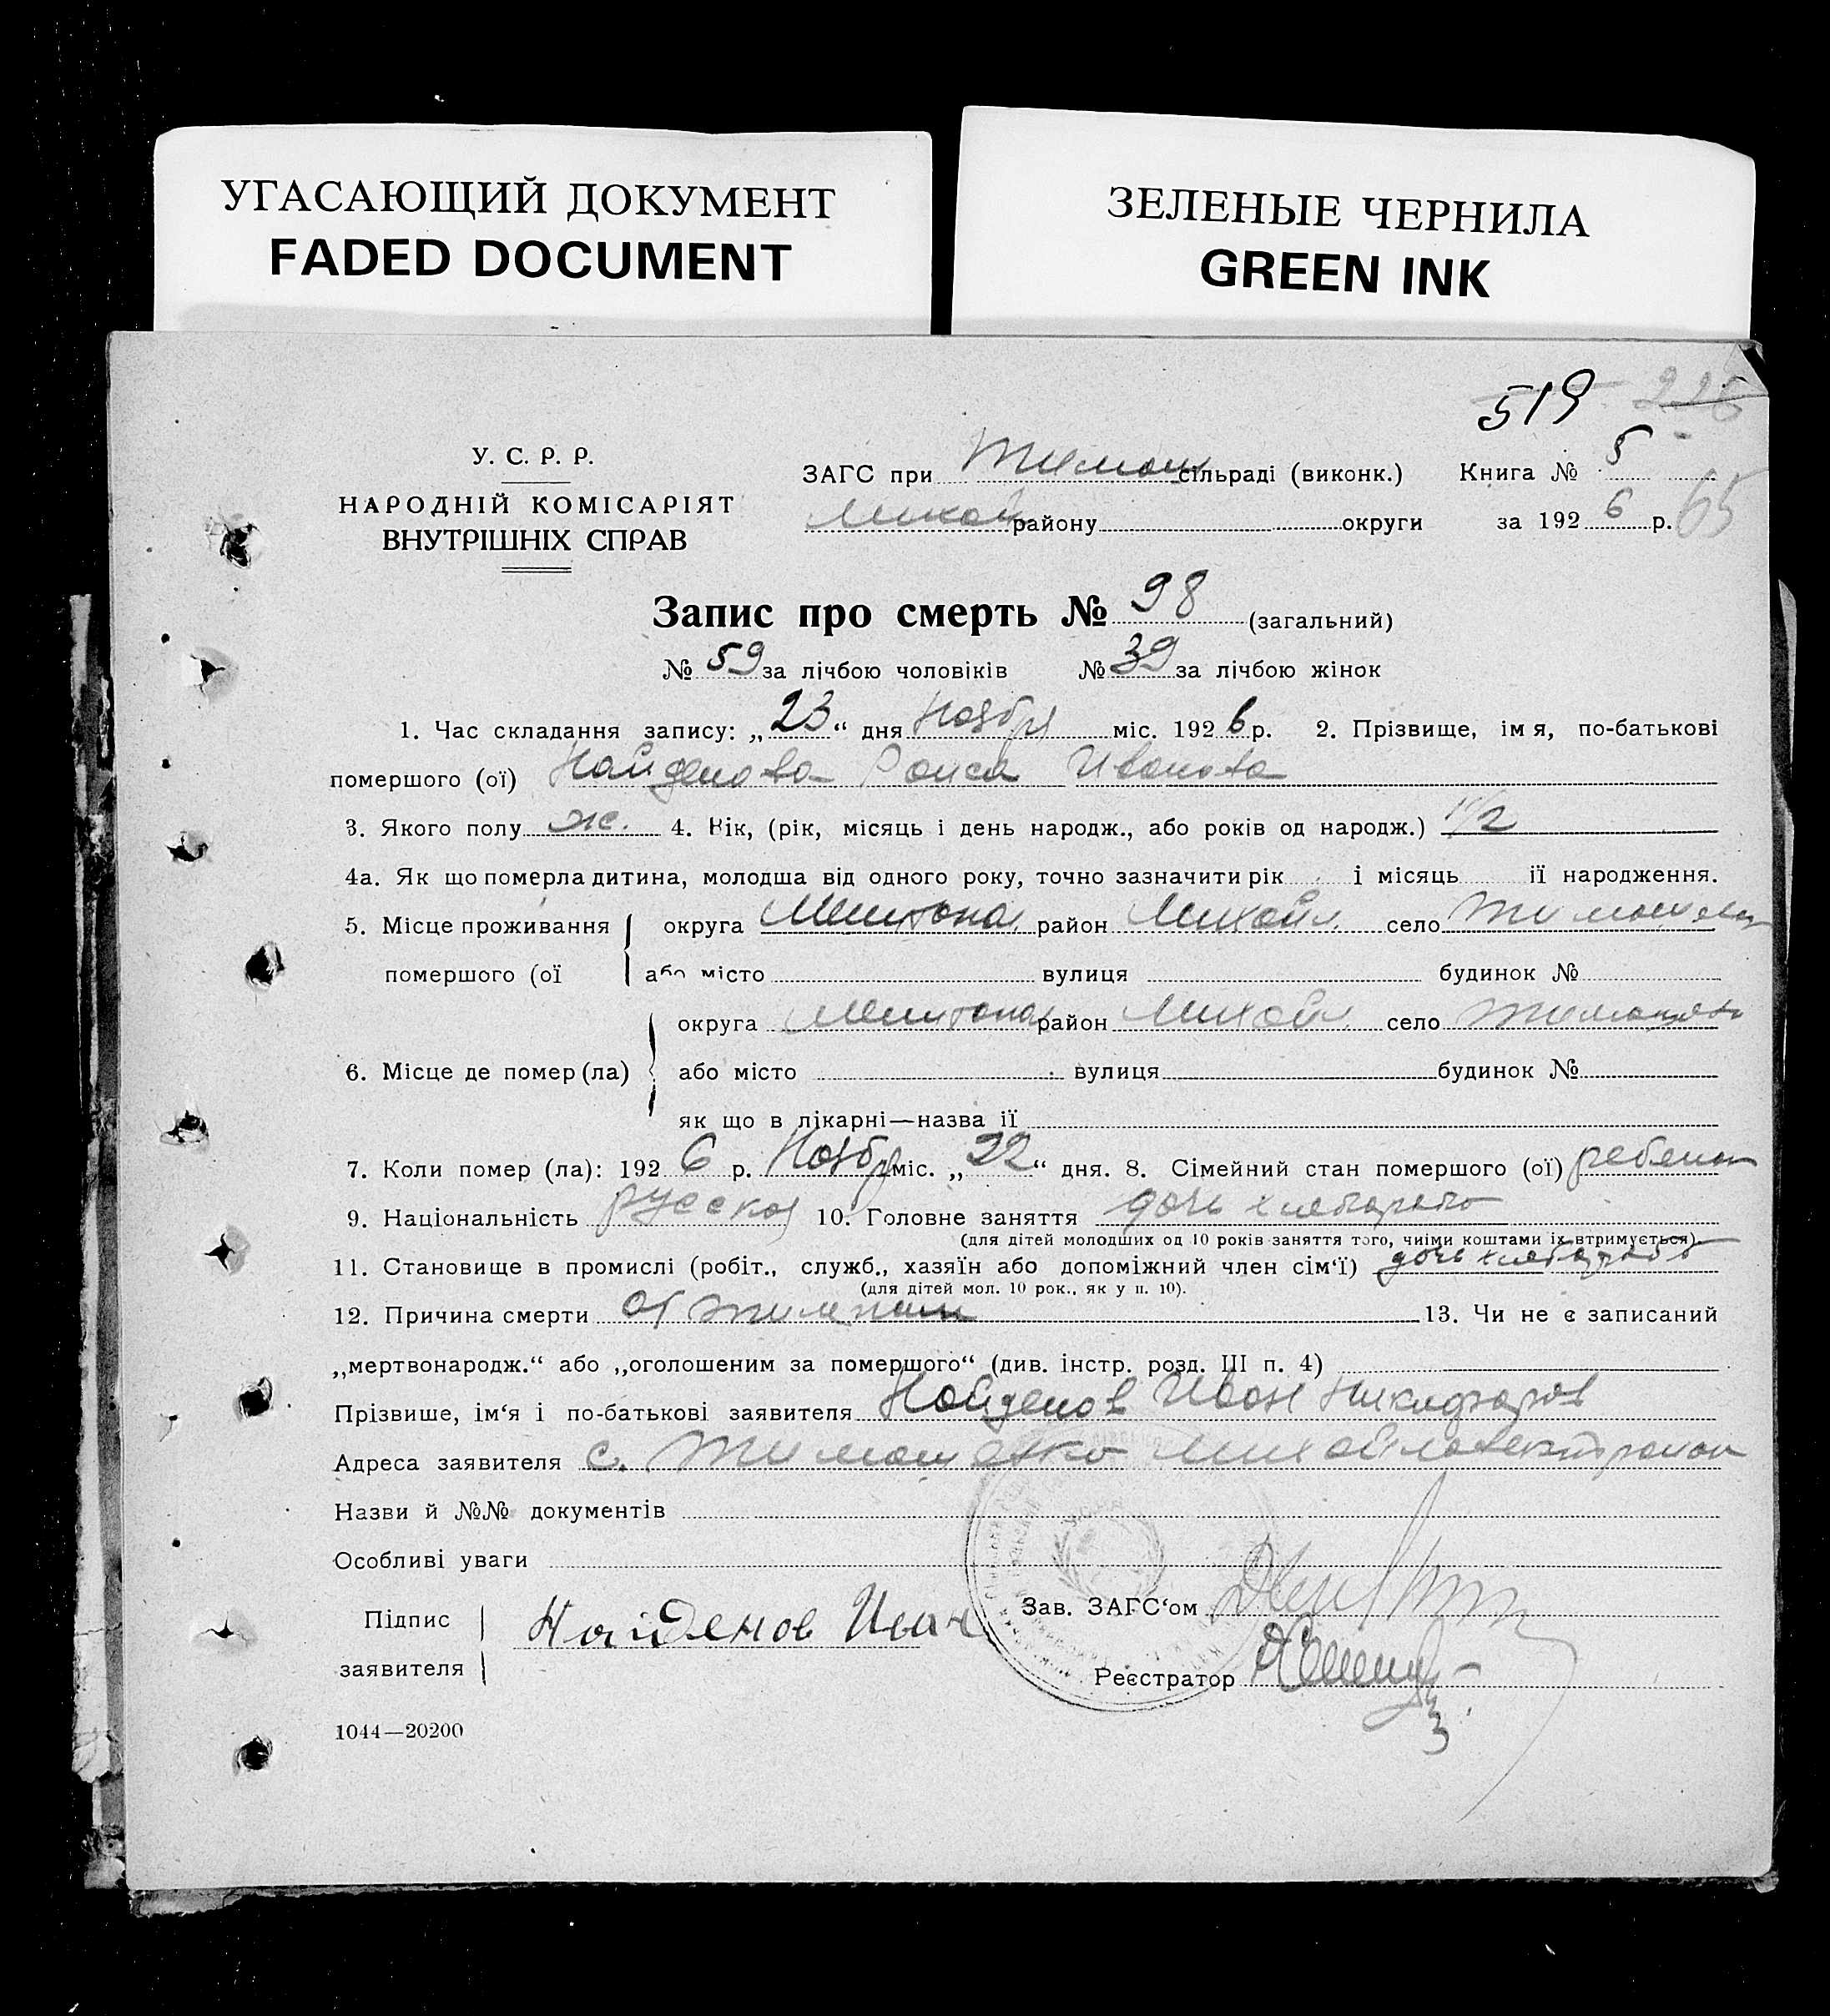 УГАСАЮЩИЙ ДОКУМЕНТ
FADED DOCUMENT
ЗЕЛЕНЫЕ ЧЕРНИЛА
GREEN INK
519 226
У. С. Р. Р.
НАРОДНІЙ КОМІСАРІЯТ
ВНУТРІШНІХ СПРАВ
ЗАГС при Тимош сільраді (виконк.) Книга № 5
Михай району округи за 1926 р. 65
Запис про смерть № 98 (загальний)
№ 59 за лічбою чоловіків № 39 за лічбою жінок
1. Час складання запису: „23“ дня Ноября міс. 1926 р. 2. Прізвище, імя, по-батькові
помершого (ої) Найденова Раиса Иванова
3. Якого полу ж. 4. Вік, (рік, місяць і день народж., або років од народж.) 1 1/2
4а. Як що померла дитина, молодша від одного року, точно зазначити рік і місяць її народження.
5. Місце проживання помершого (ої округа Мелитопол район Михайл. село Тимошевка
або місто вулиця будинок №
6. Місце де помер(ла) округа Мелитопол район Михайл. село Тимошевка
або місто вулиця будинок №
як що в лікарні—назва ії
7. Коли помер (ла): 1926 р. Ноябр міс. „22“ дня. 8. Сімейний стан помершого (ої) ребенок
9. Національність русская 10. Головне заняття дочь хлебороба
(для дітей молодших од 10 років заняття того, чиїми коштами їх втримується).
11. Становище в промислі (робіт., служб., хазяїн або допоміжний член сім‘ї) дочь хлебороба
(для дітей мол. 10 рок., як у п. 10).
12. Причина смерти от 13. Чи не є записаний
„мертвонародж.“ або „оголошеним за помершого“ (див. інстр. розд. III п. 4)
Прізвише, ім‘я і по-батькові заявителя Найденов Иван Никифоров
Адреса заявителя с. Тимошевка Михайловский район
Назви й №№ документів
Особливі уваги
Підпис заявителя Найденов Иван
Зав. ЗАГС‘ом
Реєстратор
1044—20200